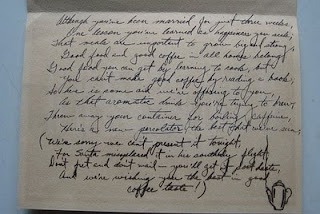 Although you've been married for just three weeks,
One lesson you've learned as happiness you seek;
That meals are important to grow by
Good food and good coffee in all homes belong.
Good food you can get by learning to cook, but
You can't make good coffee by reading a book,
So here is some and we're offering to you,
As that aromatic drink you're trying to brew,
Throw away your container for boiling caffeine,
Here's a new percolator the best that we've seen,
(We're sorry we can't present it tonight,
For Santa misplaced it in his southerly flight.
Don't fret and don't wait - you'll get it
And we're wishing you the best in good
coffee taste!)